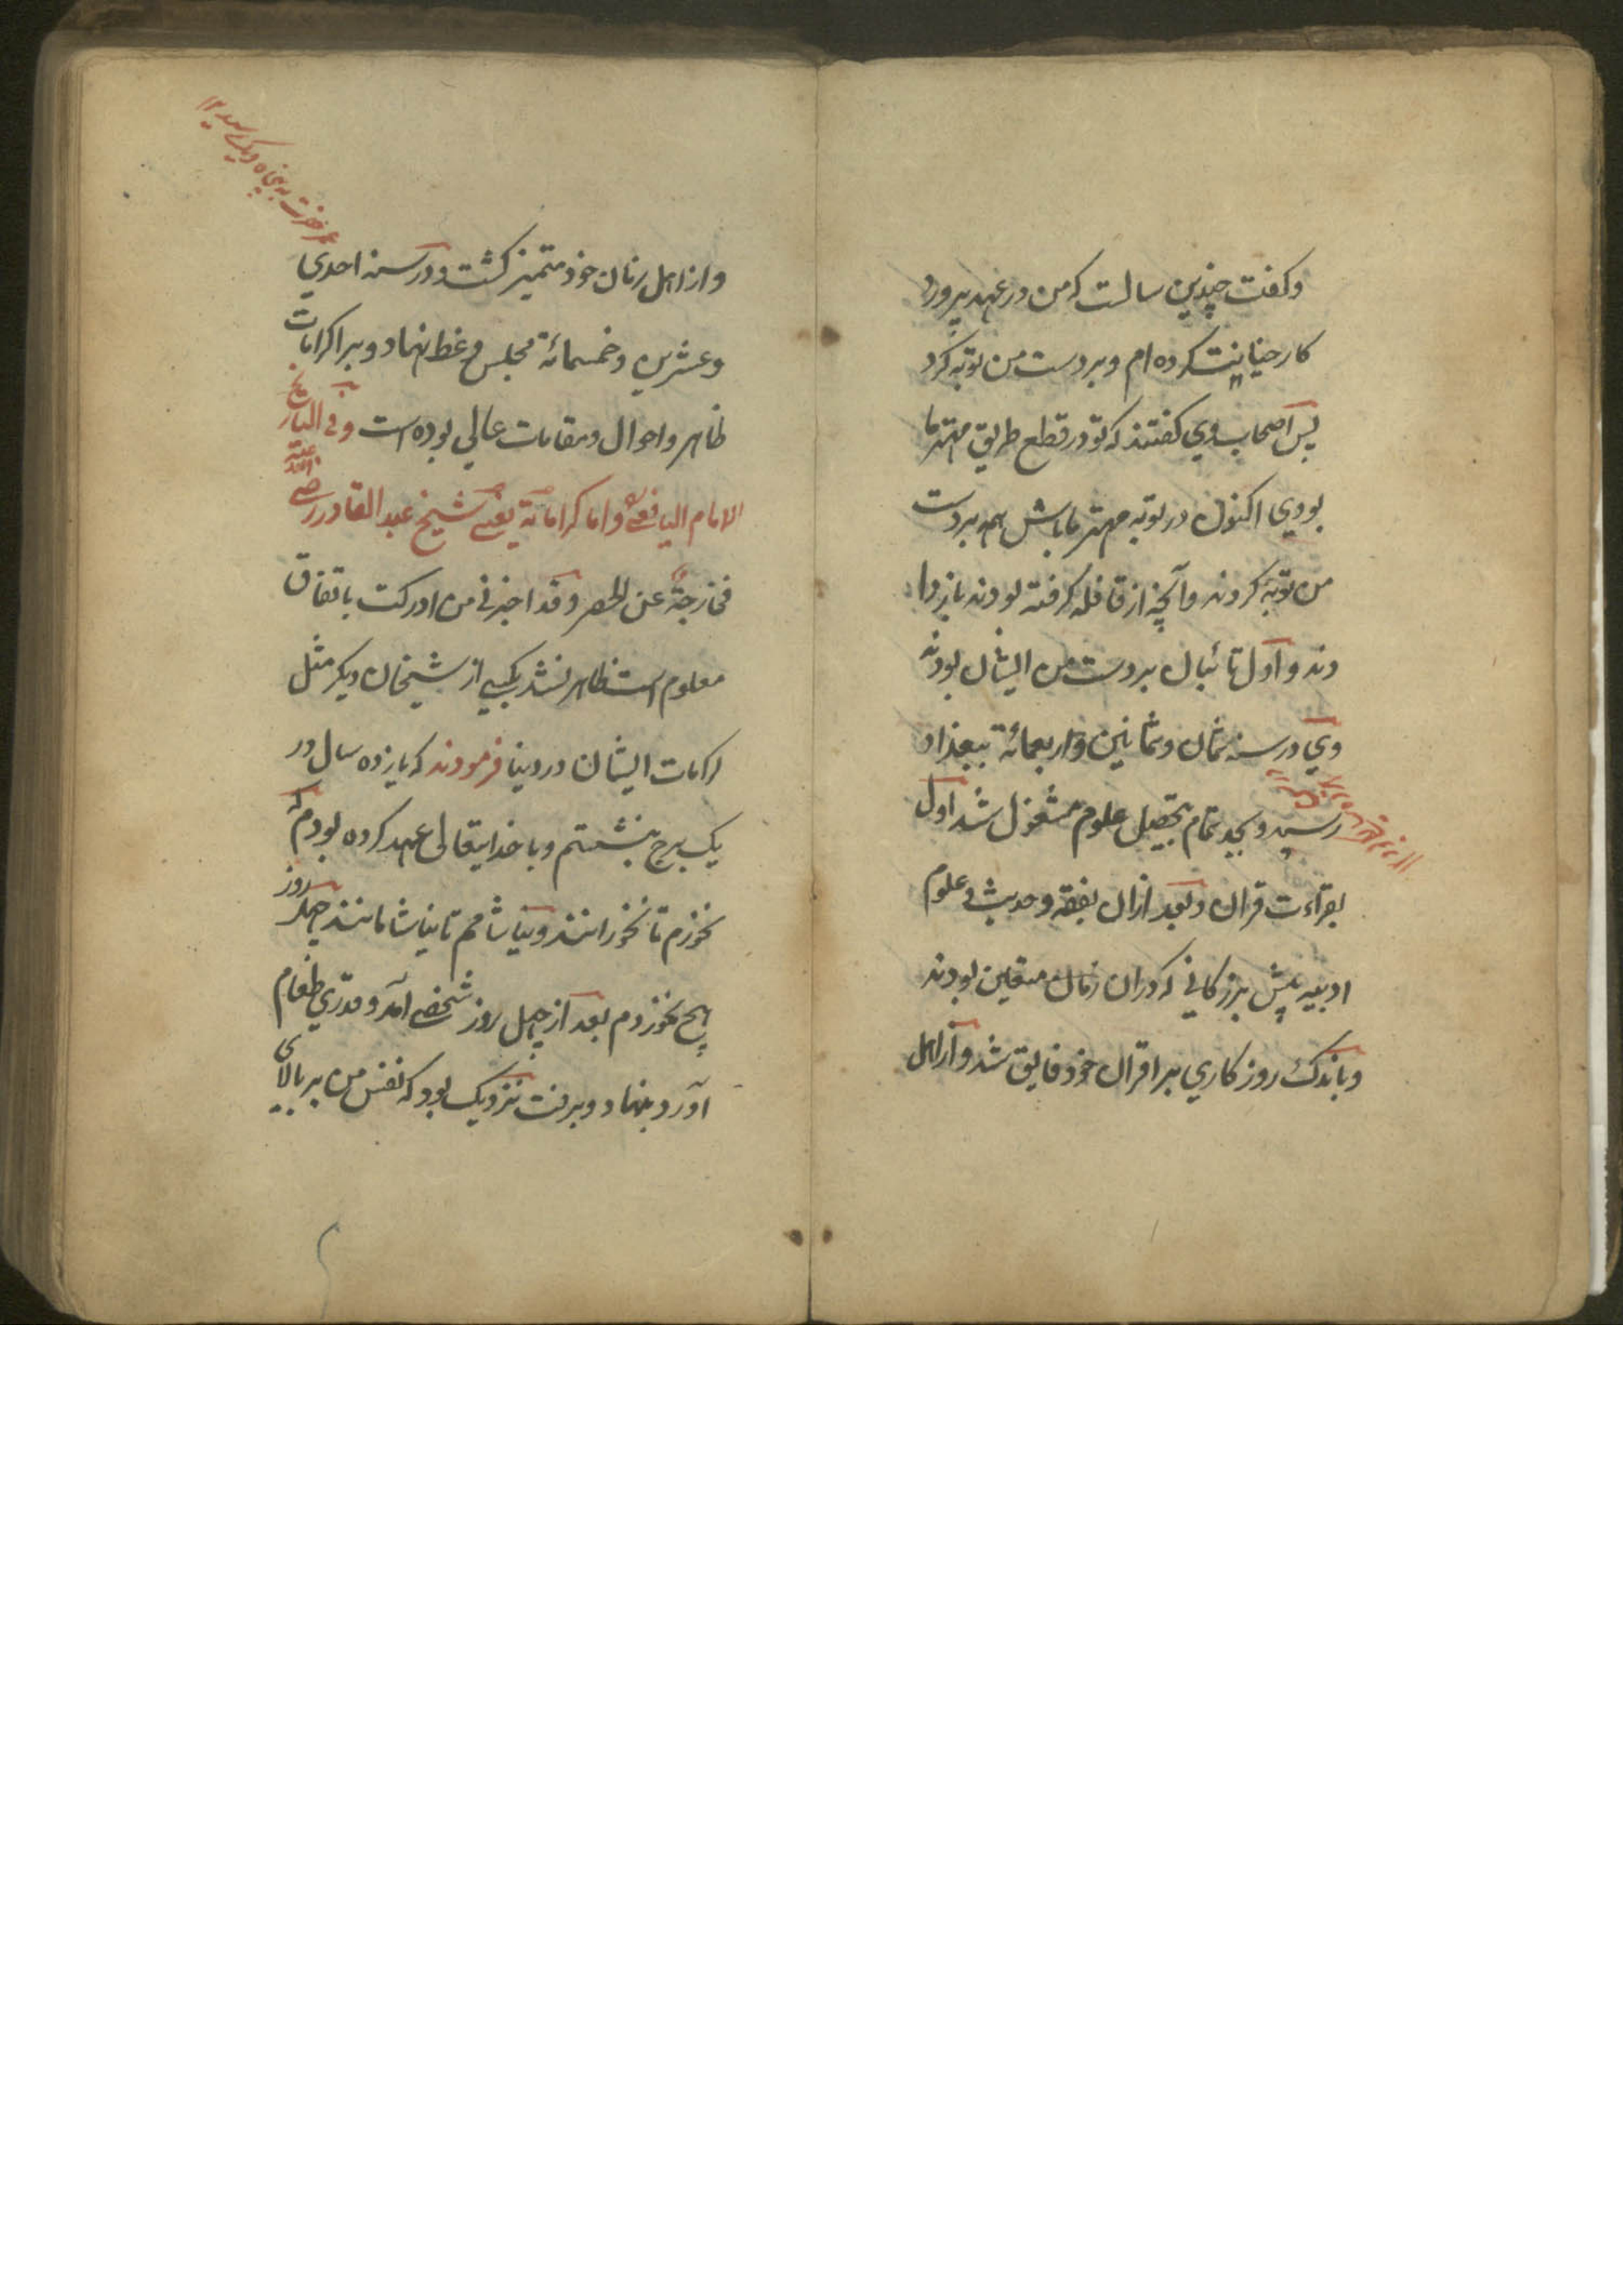 وکفت چندین سالست که من در عهد پرورد
کار خیانت کرده ام و بر دست من توبه کرد
پس اصحاب وی کفتند که تو در قطع طریق مهتر ما
بودی اکنون در توبه مهتر ما باش همه بر دست
من توبه کردند و آنچه از قافله کرفته بودند باز دا
دند و اول تائبان بر دست من ایشان بودند
وی در سنه ثمان و ثمانین و اربعمائة ببغداد
رسید و بجد تمام بتحصیل علوم مشغول شد اول
بقراءت قران و بعد ازان بفقه و حدیث و علوم
ادبیه پیش بزرکانی که دران زمان متعین بودند
و باندک روزکاری بر اقران خود فایق شد و از اهل
و از اهل زمان خود متمیز کشت و در سنه احدی
و عشرین و خمسمائة مجلس وعظ نهاد و برا کرامات
ظاهر و احوال و مقامات عالی بوده است و فی التاریخ
الامام الیافعی و اما کراماته یعنی شیخ عبد القادر رضی الله عنه
فخارجة عن الحصر و قد اخبرنی من ادرکت باتفاق
معلوم است ظاهر نشد بکسی از شیخان دیکر مثل
کرامات ایشان در دنیا فرمودند که یازده سال در
یک برج بنشستم و با خدایتعالی عهد کرده بودم که
نخورم تا نخورانند و نیاشامم تا نیاشامانند چهل روز
هیچ نخوردم بعد از چهل روز شخصی آمد و قدری طعام
آورد بنهاد و برفت نزدیک بود که نفس من بر بالای